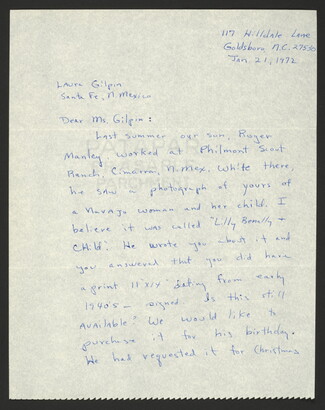 117 Hilldale Lane
Goldsboro, N.C. 27530
Jan. 21, 1972
Laura Gilpin
Santa Fe, N. Mexico
Dear Ms. Gilpin:
Last summer our son, Roger
Manley, worked at Philmont Scout
Ranch, Cimarron, N. Mex. While there,
he saw a photograph of yours of
a Navajo woman and her child. I
believe it was called "Lilly Benally +
Child." He wrote you about it and
you answered that you did have
a print 11"x14 dating from early
1940's - signed. Is this still
available? We would like to
purchase it for his birthday.
He had requested it for Christmas